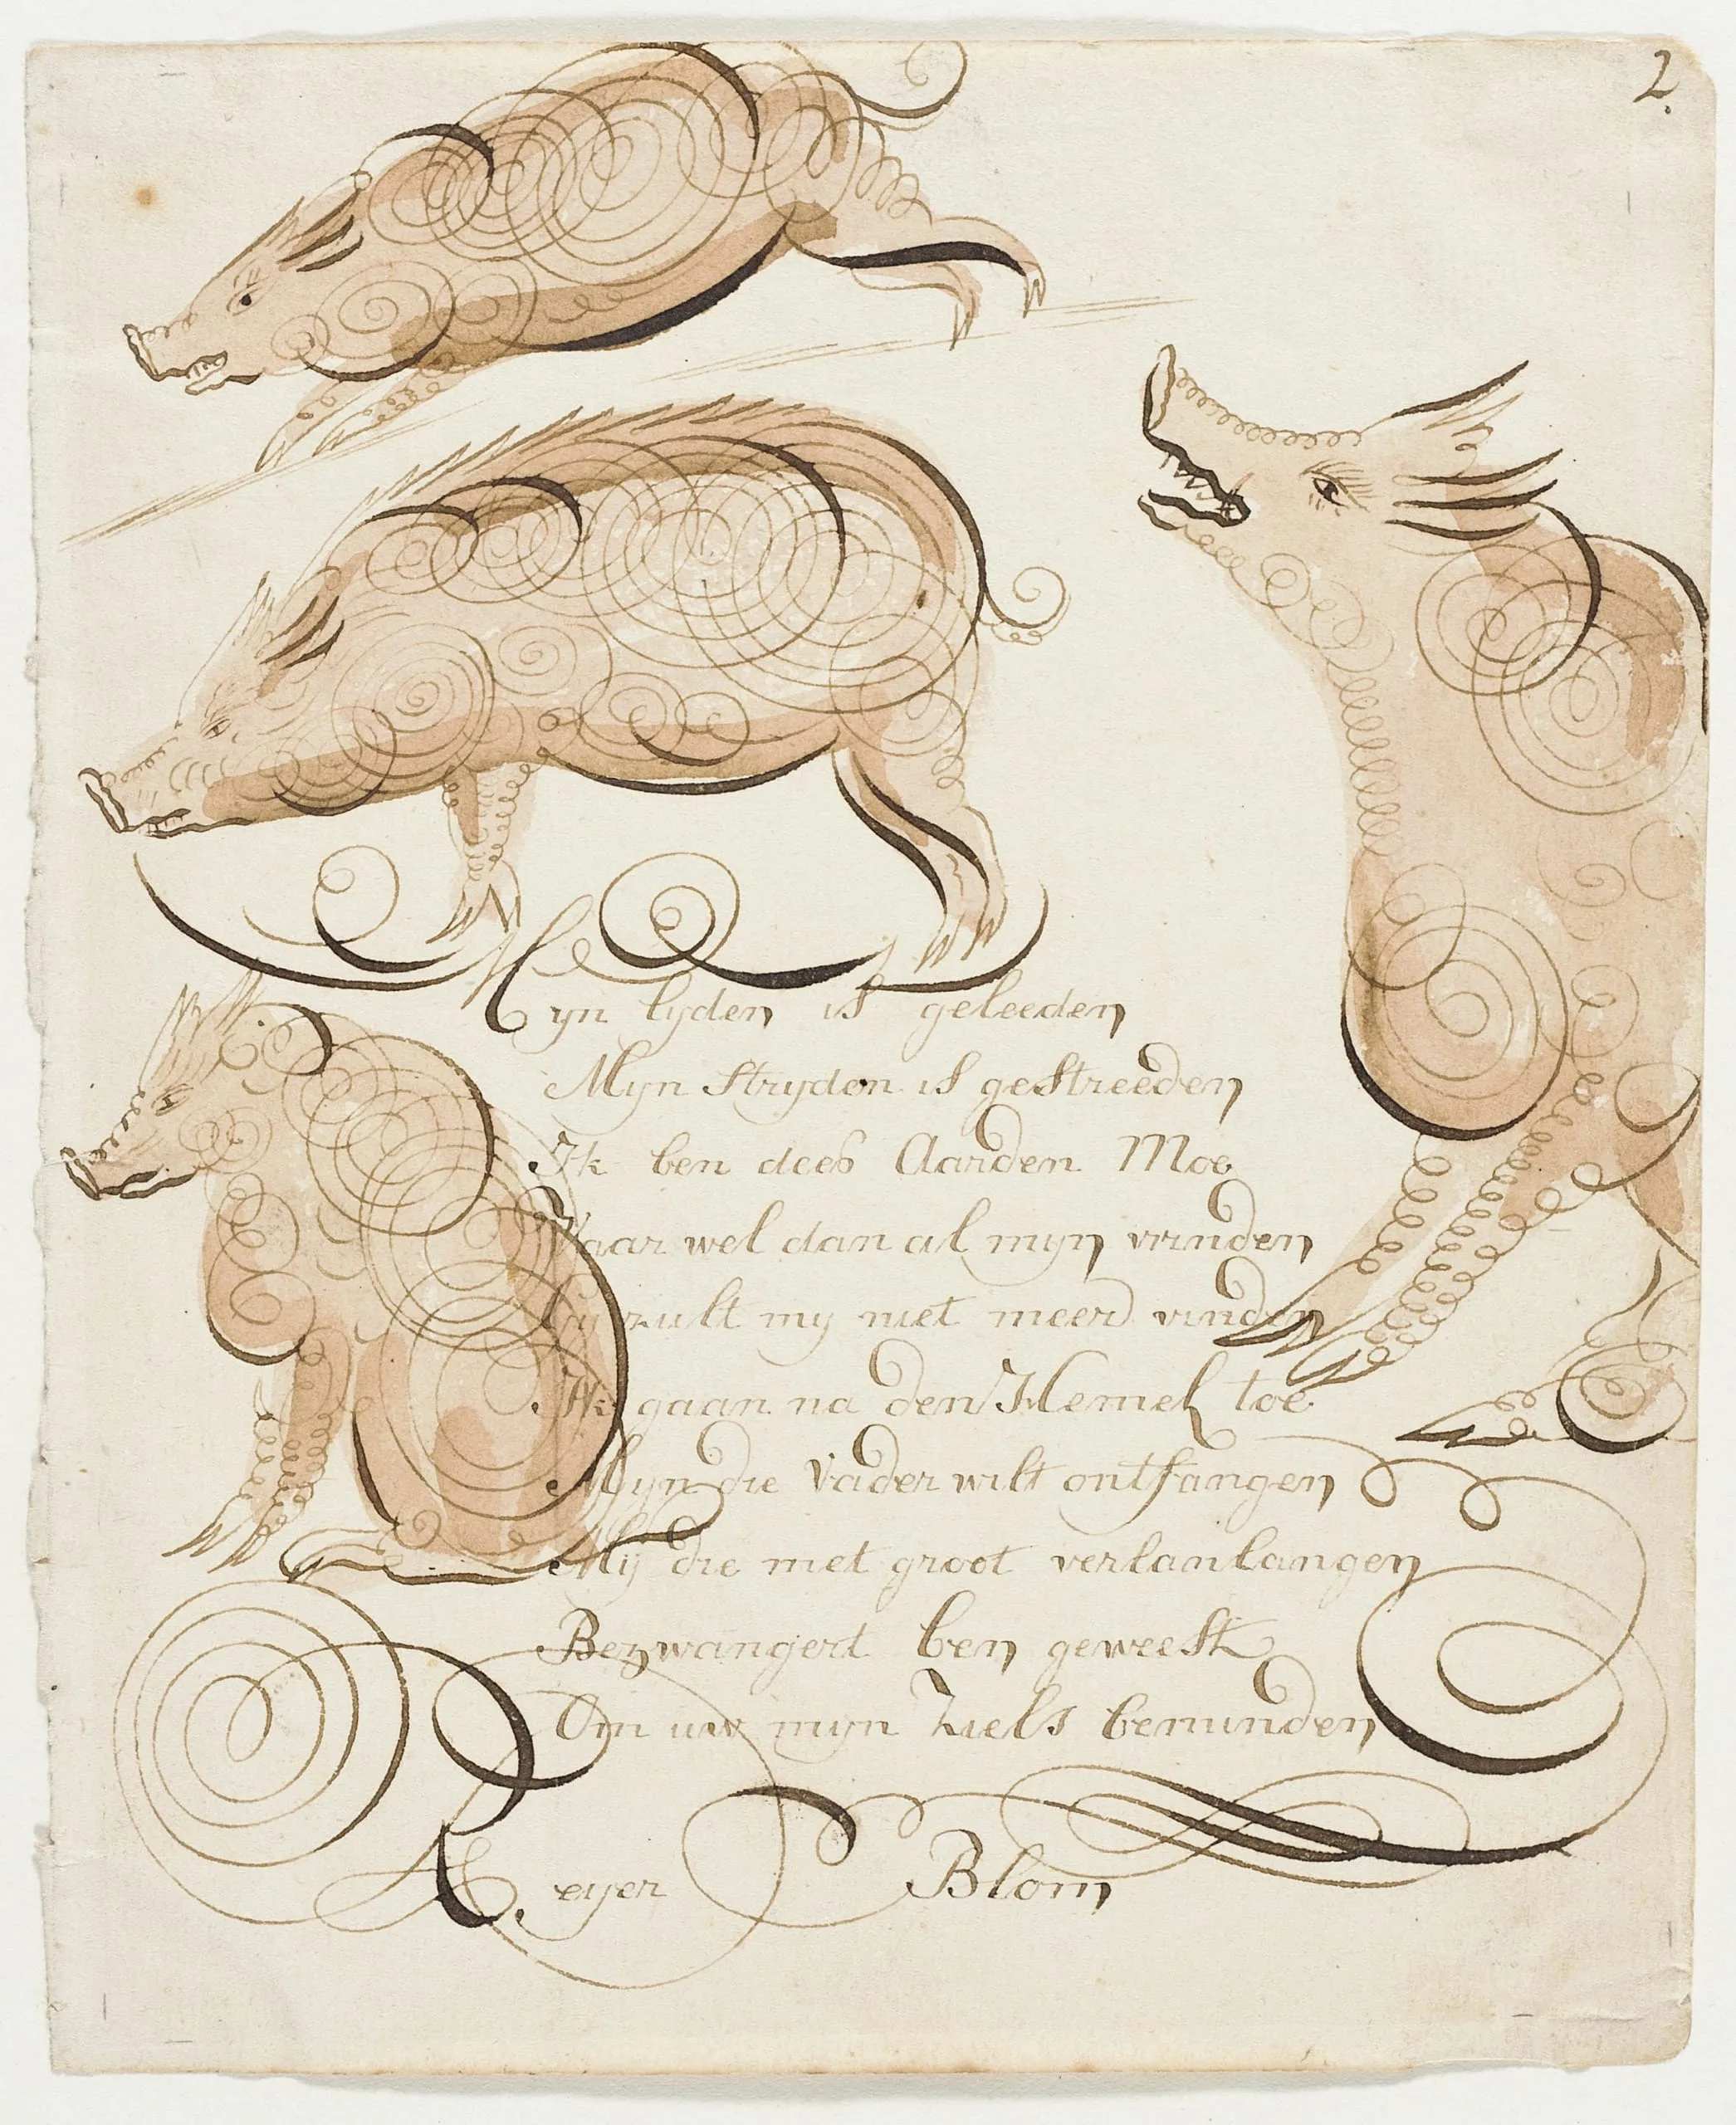 2.
Myn lyden is geleeden
Myn stryden is gestreeden
Ik ben dees Aarden Moe
Vaar wel dan al myn vrinden
Gy zult my niet meer vinden
Ik gaan na den Hemel toe
Myn die Vader wilt ontfangen
Mij die met groot verlanlangen
Bezwangert ben geweest
Om uw myn Ziels beminden
Reyer Blom